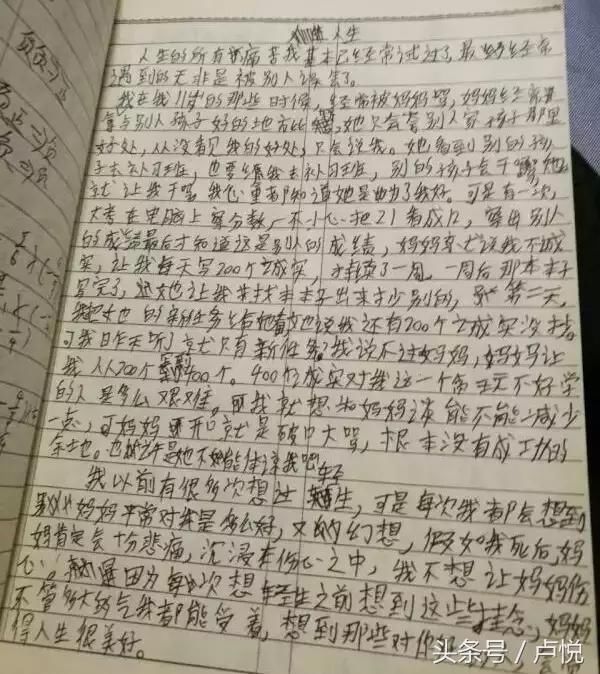 人生
人生的所有酸痛苦我基本已经常试过了,最经常
遇到的无非是被别人误会了。
我在我11岁的那些时候,经常被妈妈骂,妈妈经常
拿与别人孩子好的地方比,她只会拿别人家孩子那里
好处,从没看见我的好处,只会说我。她看到别的孩
子去补习班,也要给我去补习班,别的孩子会干嘛她
就让我干嘛,我心里都知道她是为了我好。可是有一次,
大考在电脑上算分数,一不小心把21看成12,算出别人
的成绩最后才知道这是别人的成绩,妈妈就说我不诚
实,让我每天写200个诚实,持续了一周。一周后那本本子
写完了,她让我去找本本子出来抄别的,第二天,
我把她的新任务给她看她说我还有200个诚实没抄
可我昨天听了就只有新任务,我说不过妈妈,妈妈让
我从200个400个。400个诚实对我这一个天不好学
的人是多么艰难。可我就想和妈妈谈能不能减少
一点,可妈妈开口就是破口大骂,根本没有成功的
余地。也许是她不能体谅我吧
我以前有很多次想过轻生,可是每次我都会想到
妈妈平常对我是多么好,又幻想,假如我死后,妈
妈肯定会十分悲痛,沉浸在伤心之中,我不想让妈妈伤
心。就是因为每次想轻生之前想到这些挂念,妈妈
不管多大的气我都能受着,想到那些对你好
得人生很美好。
头条号/卢悦